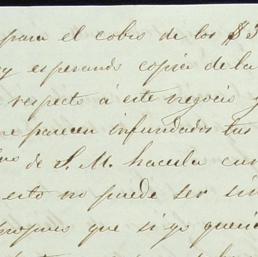 para el cobro de los $3
y esperando copia de la
respecto á este negocio y
me parecen infundados tus
de S. M. hacerla cum
esto no puede ser sin
propuso que si yo queria